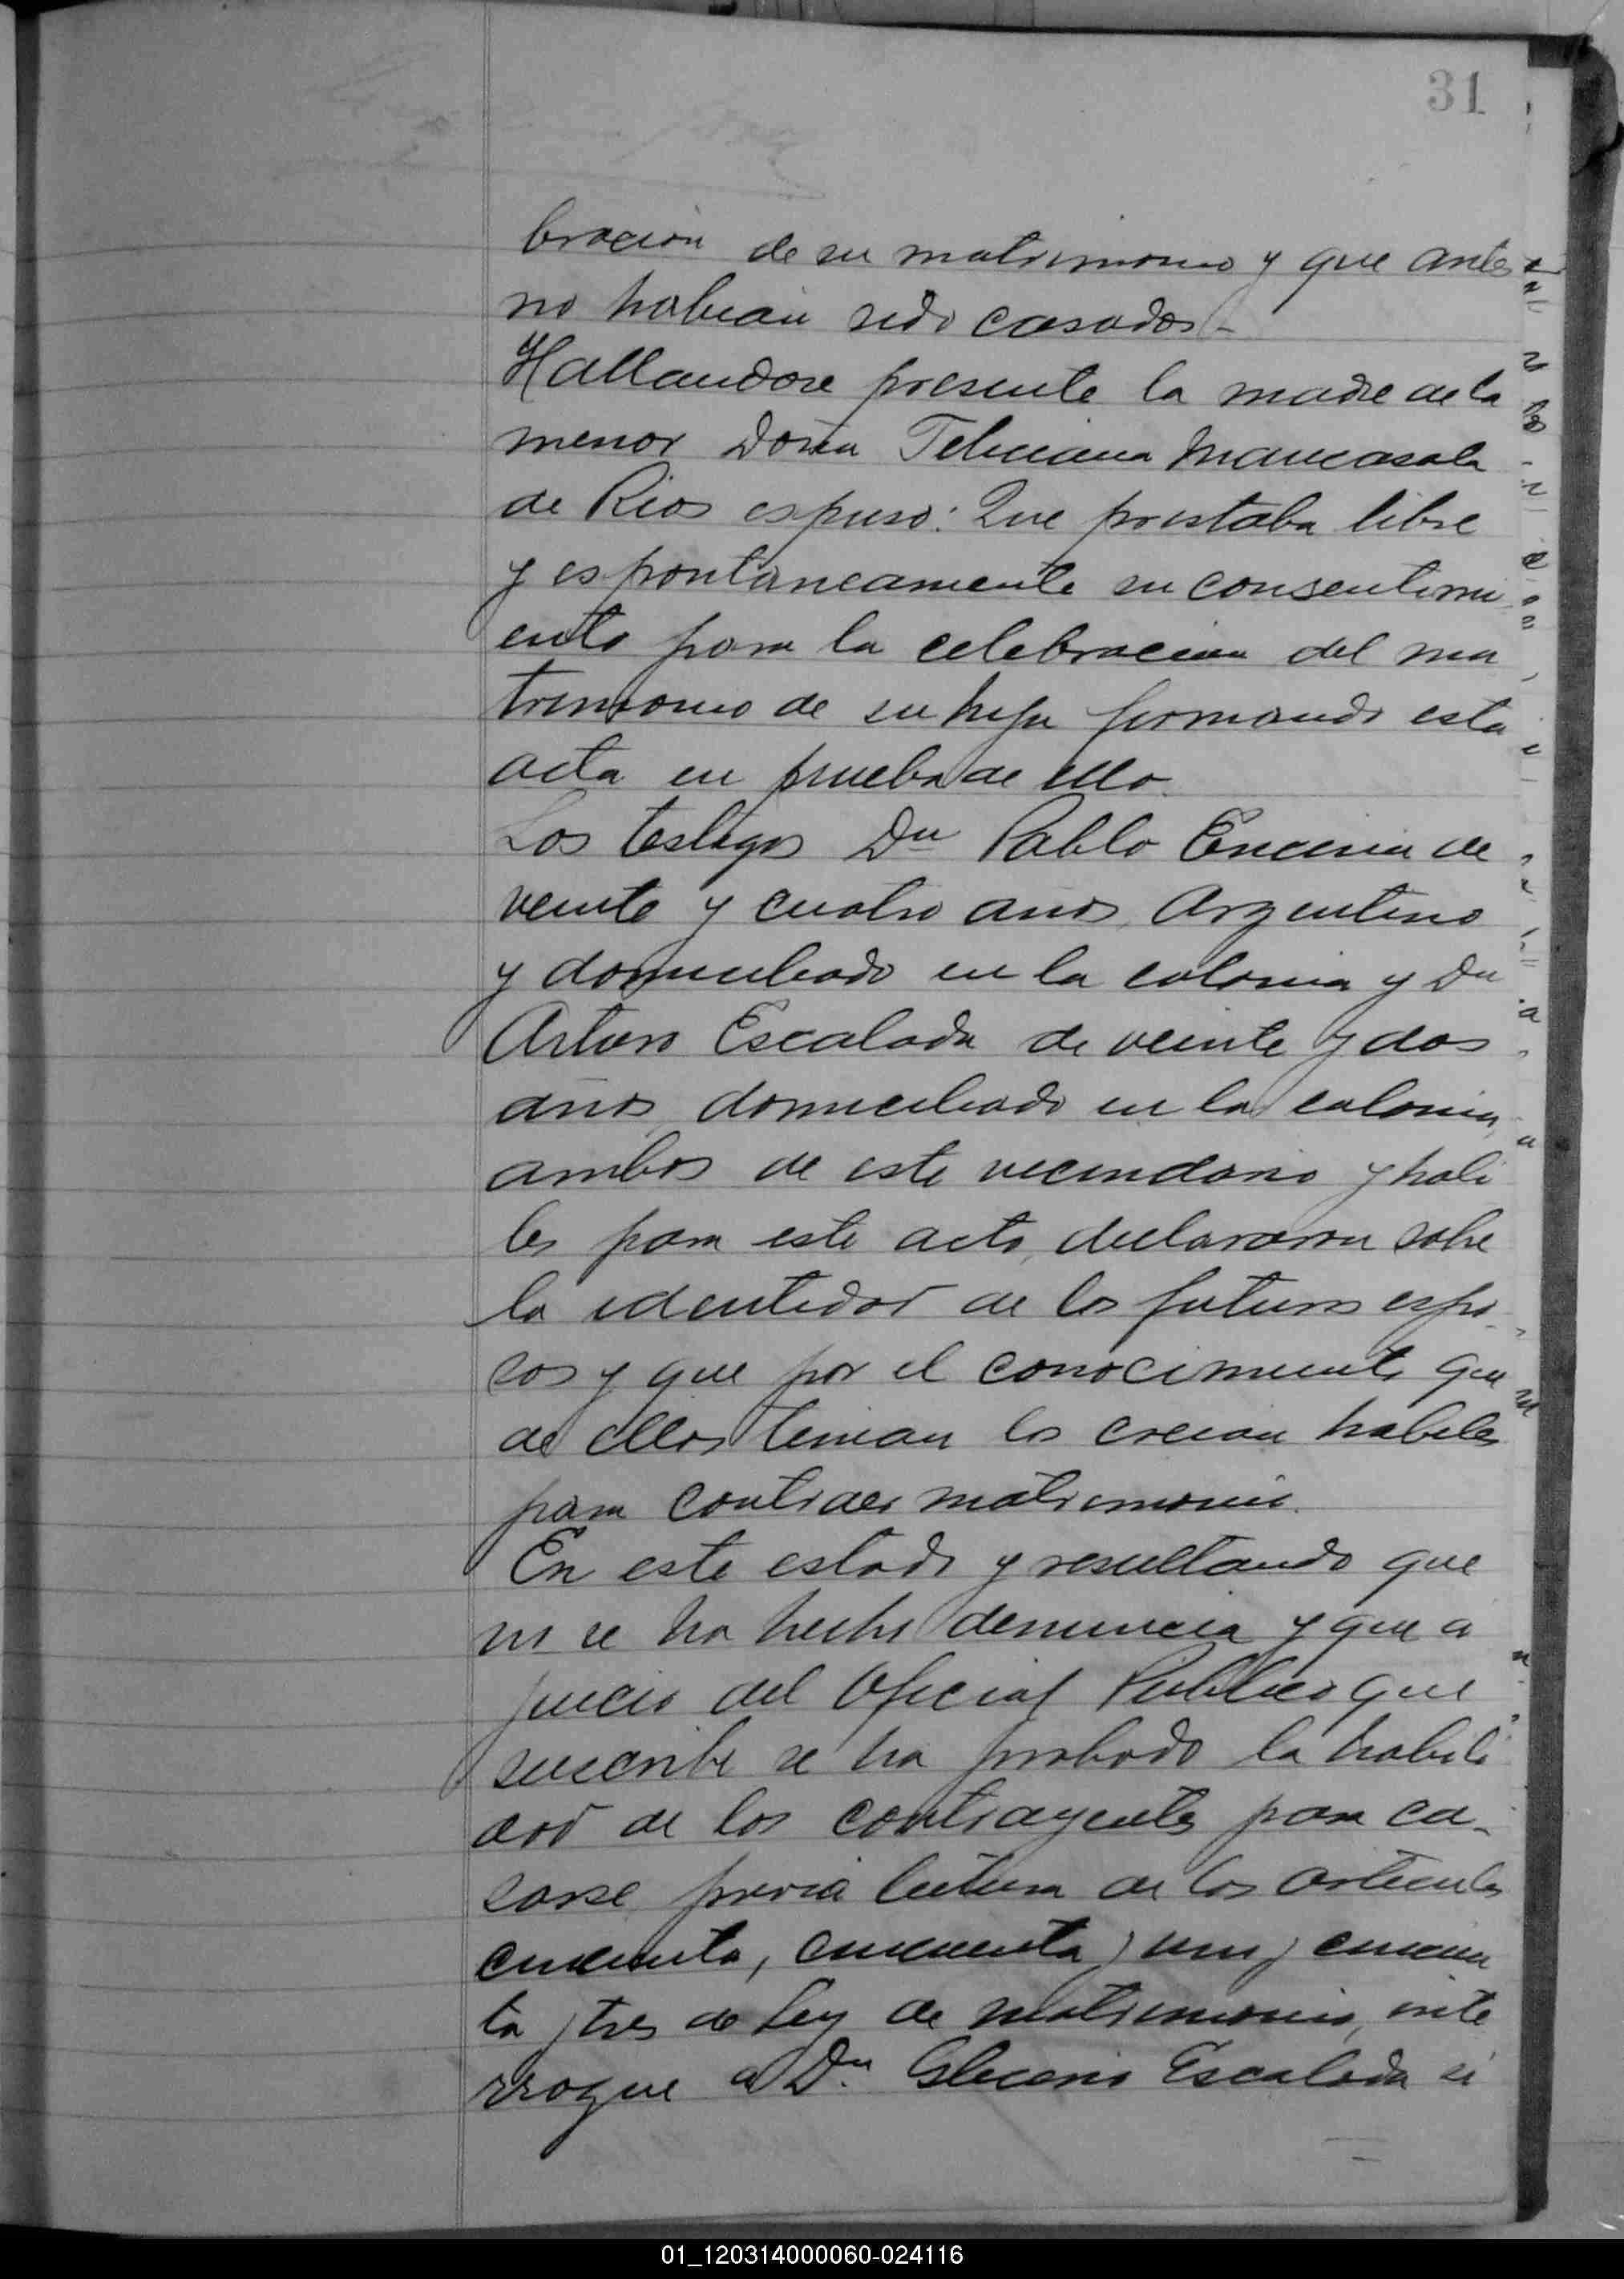 31
bracion de su matrimonio y que antes
no habian sido casados-
Hallandose presente la madre de la
menor Doña Feliciana Mancasola
de Rios espuso: Que prestaba libre
y espontaneamente su consentimi
ento para la celebracion del ma
trimonio de su hija firmando esta
acta en prueba de ello.
Los testigos Dn Pablo Encina de
veinte y cuatro años, Argentino
y domiciliado en la colonia y Dn
Arturo Escalada de veinte y dos
años domiciliado en la colonia,
ambos de este vecindario y habi
les para este acto, declararon sobre
la identidad de los futuros espo-
sos y que por el conocimiento que
de ellos tenian los creian habiles
para contraer matrimonio.
En este estado y resultando que
no se ha hecho denuncia y que a
juicio del Oficial Publico que
suscribe se ha probado la habili
dad de los contrayentes para ca-
sarse, previa lectura de los articulos
cincuenta, cincuenta y uno y cincuen
ta y tres de Ley de matrimonio, inte
rrogue a Dn. Glicerio Escalada si
01_120314000060-024116